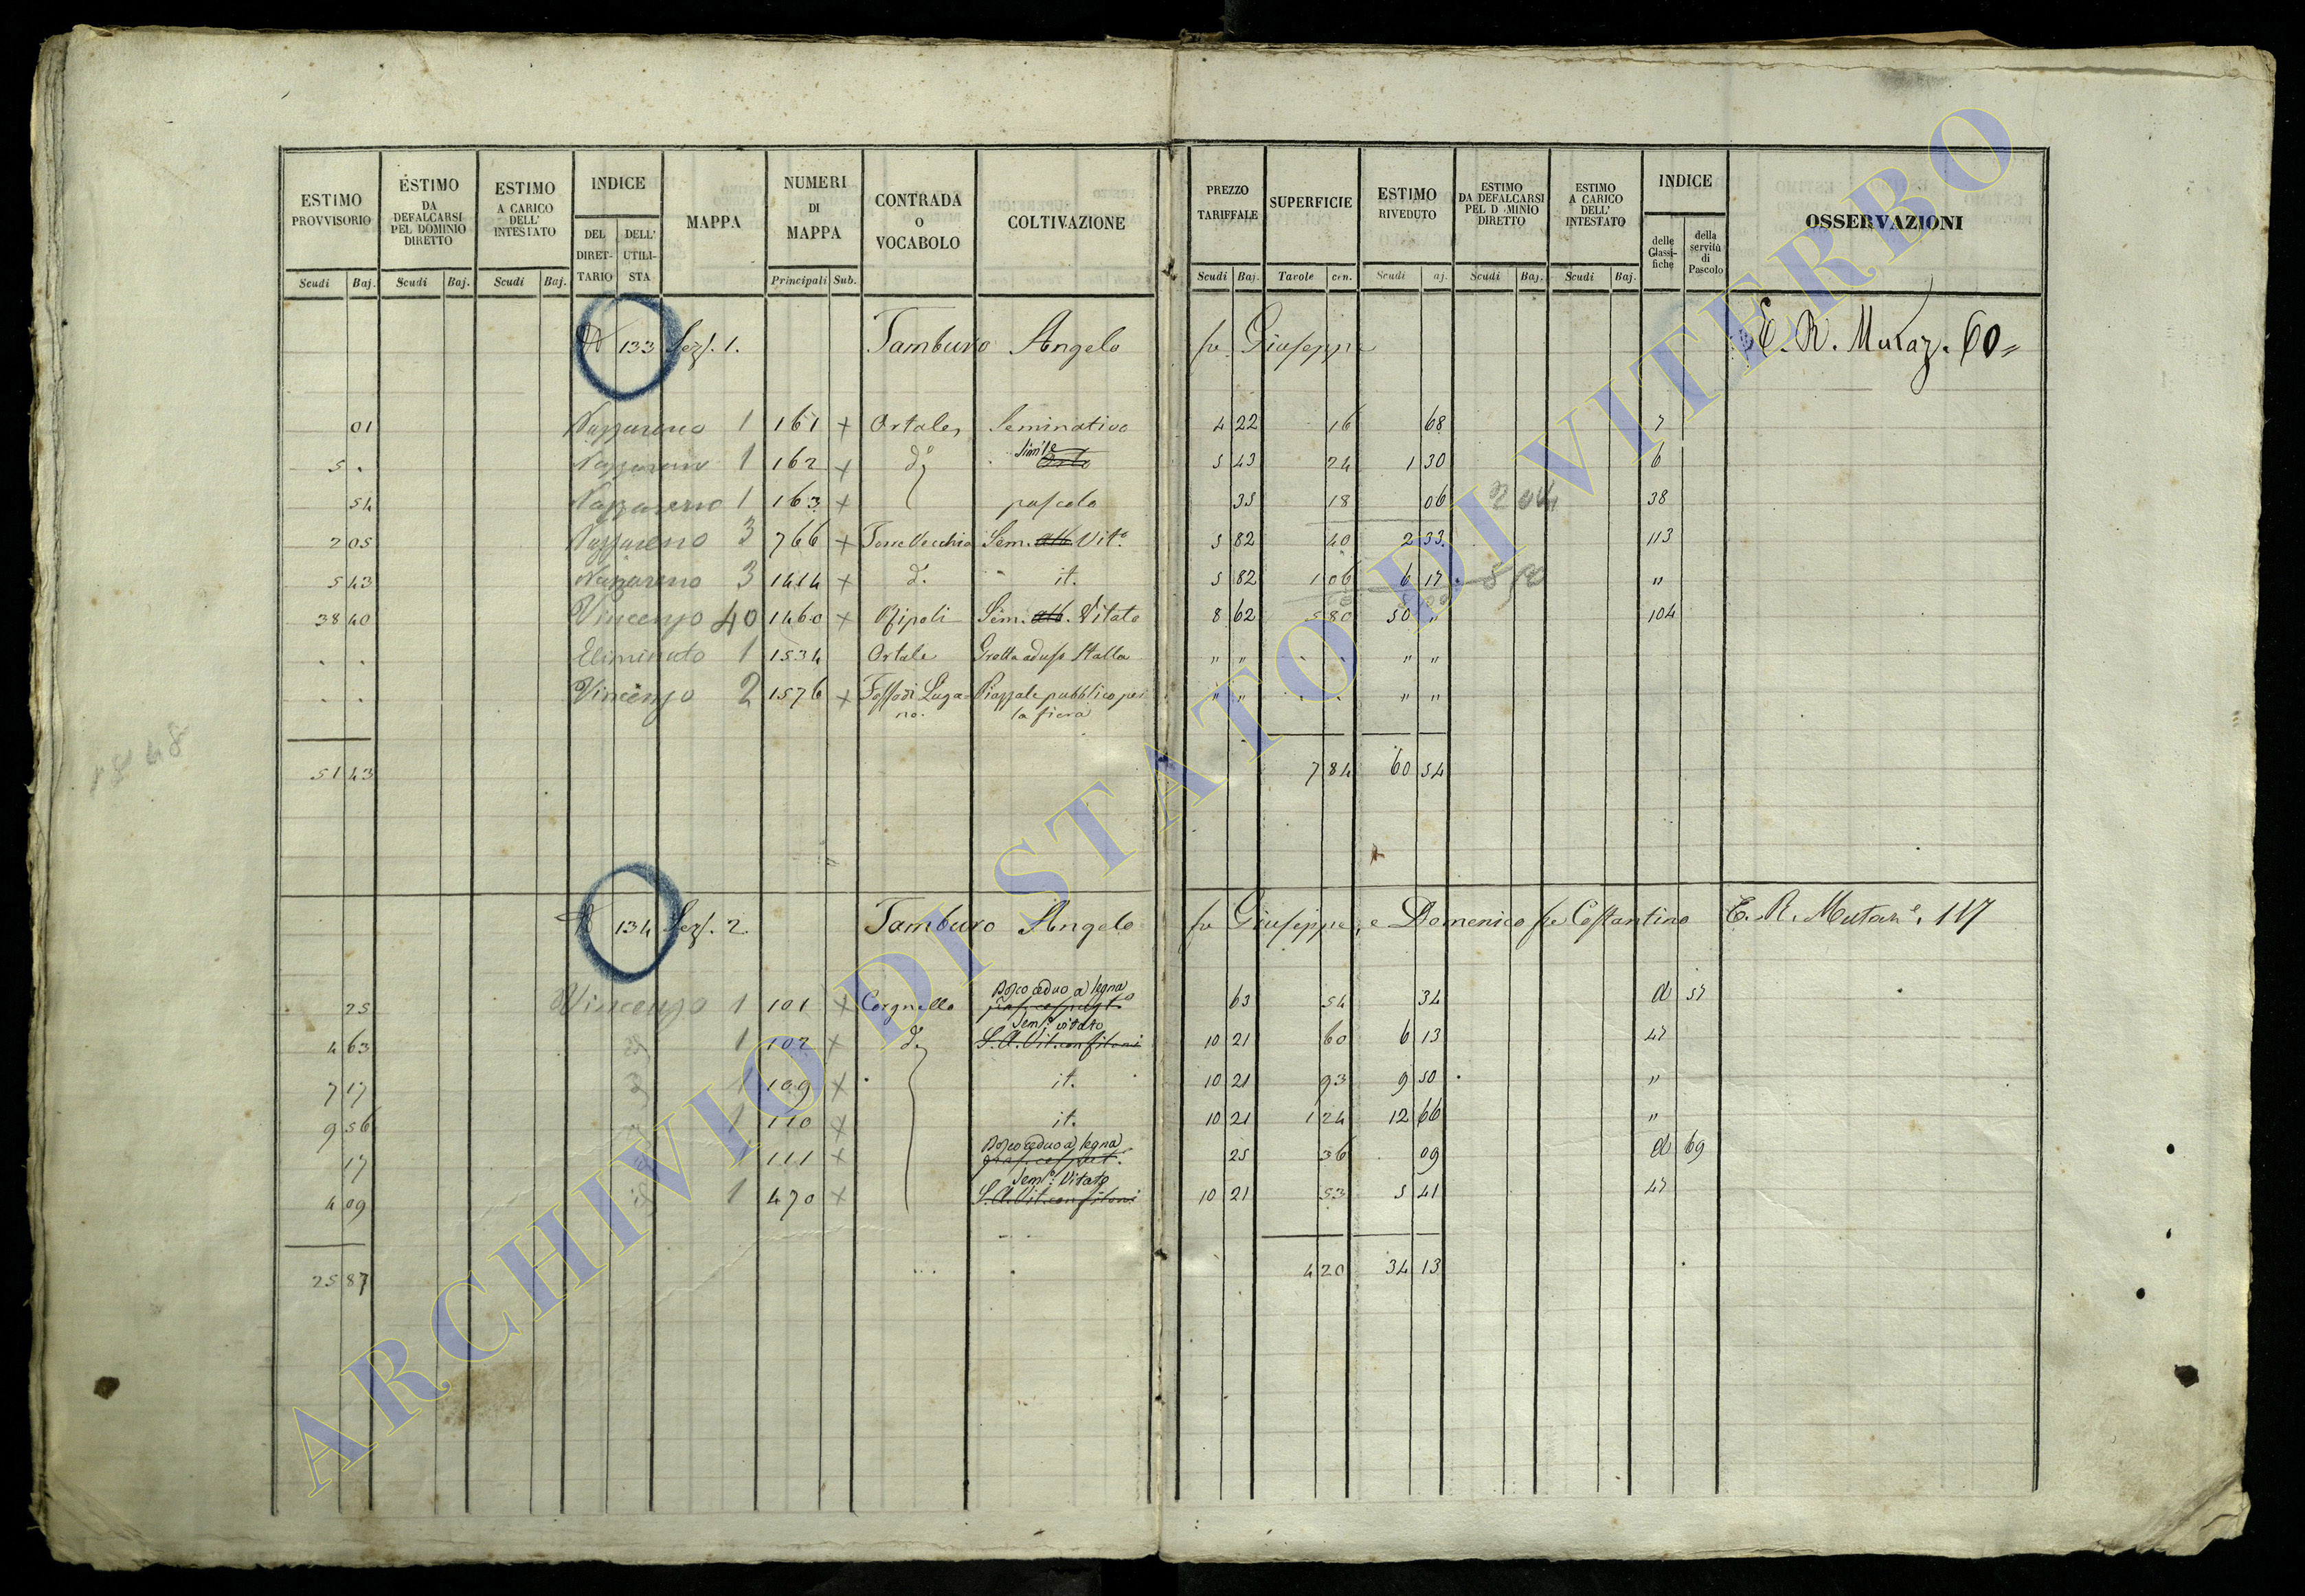 ESTIMO PROVVISORIO Scudi Baj.
ESTIMO DA DEFALCARSI PEL DOMINIO DIRETTO Scudi Baj.
ESTIMO A CARICO DELL' INTESTATO Scudi Baj.
INDICE DEL DIRETTARIO DELL' UTILISTA
MAPPA
NUMERI DI MAPPA Principali Sub.
CONTRADA O VOCABOLO
COLTIVAZIONE
PREZZO TARIFFALE Scudi Baj.
SUPERFICIE Tavole cen.
ESTIMO RIVEDUTO Scudi aj.
ESTIMO DA DEFALCARSI PEL D MINIO DIRETTO Scudi Baj.
ESTIMO A CARICO DELL' INTESTATO Scudi Baj.
INDICE delle Classifiche della servitù di Pascolo
OSSERVAZIONI
133 Sez. 1. Tamburo Angelo fu Giuseppe E. R. Mutaz. 60=
01 Nazzareno 1 161 + Ortale, Seminativo 4 22 16 68 7
5 . Nazzareno 1 162 + d.º Orto 5 43 24 1 30 6
54 Nazzareno 1 163 + pascolo 35 18 06 38
2 05 Nazzareno 3 766 + Torre Vecchia Sem. alb. Vit.º 5 82 40 2 33 113
5 43 Nazzareno 3 1414 + d.º it. 5 82 1 06 6 17 "
38 40 Vincenzo 40 1460 + Ozipoli Sem. alb. Vitato 8 62 5 80 50 " 104
. . Eliminato 1 1534 Ortale Grotta ad uso Stalla " " . . " "
. . Vincenzo 2 1576 + Fossodi Lugano. Piazzale pubblico per la fiera " " . . " "
51 43 7 84 60 54
134 Sez. 2. Tamburo Angelo fu Giuseppe, e Domenico fu Costantino E. R. Mutaz.e 117
Bosco ceduo a legna
25 Vincenzo 1 101 + Corgnello 63 54 34 d 57
Sem.º vitato
4 63 1 102 + d.º S. A. Vit. con filoni 10 21 60 6 13 47
7 17 1 109 + it. 10 21 93 9 50 "
9 56 1 110 + it. 10 21 1 24 12 66 "
Bosco ceduo a legna
17 111 + 25 36 09 d 69
Sem.º Vitato
4 09 1 470 + S. A. Vit. con filoni 10 21 53 5 41 47
25 87 4 20 34 13
ARCHIVIO DI STATO DI VITERBO